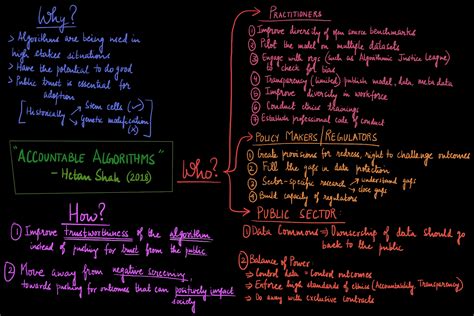 Why?
> Algorithms are being used in
high stakes situations
> Have the potential to do good
> Public trust is essential for
adoption
[Historically → Stem cells (✓)
→ genetic modification (x)]
"ACCOUNTABLE ALGORITHMS"
- Hetan Shah (2018)
How?
1 Improve trustworthiness of the algorithm
instead of pushing for trust from the public
2 Move away from negative screening,
towards pushing for outcomes that can positively impact
society
Who?
PRACTITIONERS
1 Improve diversity of open source benchmarks
2 Pilot the model on multiple datasets
3 Engage with orgs (such as Algorithmic Justice League)
to check for bias
4 Transparency (limited) publish model, data, meta data
5 Improve diversity in workforce
6 Conduct ethics trainings
7 Establish professional code of conduct
POLICY MAKERS/REGULATORS
1 Create provisions for redress, right to challenge outcomes
2 Fill the gaps in data protection
3 Sector-specific research → understand gaps
→ close gaps
4 Build capacity of regulators
PUBLIC SECTOR:
1 Data Commons ⇒ Ownership of data should go
back to the public
2 Balance of Power:
⇒ Control data = Control outcomes
⇒ Enforce high standards of ethics (Accountability, Transparency)
⇒ Do away with exclusive contracts